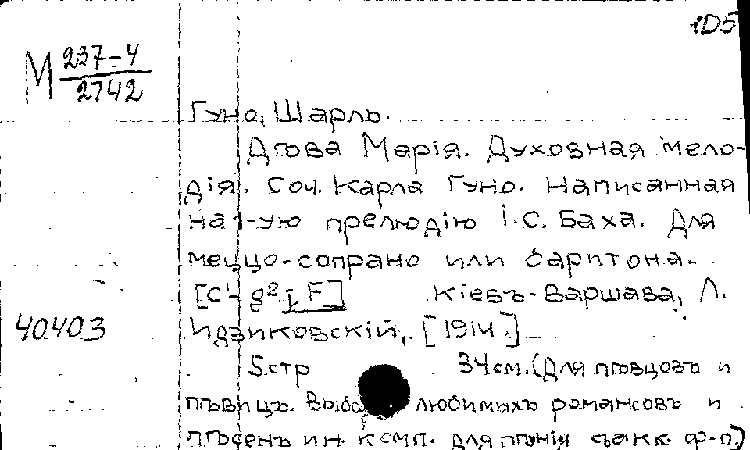 1D5
М 237-4
2742
Гуно, Шарль.
Дѣва Марія. Духовная мело-
дія. Соч. Карла Гуно. Написанная
на 1-ую прелюдію І.С. Баха. Для
меццо-сопрано или баритона.
[c¹-g²; F] Кіевъ-Варшава, Л.
40403 Идзиковскій, [1914.]
5 стр 34 см. (Для пѣвцовъ и
пѣвицъ. любимыхъ романсовъ и
пѣсенъ ин. комп. для пѣнія съ акк. ф-п.)